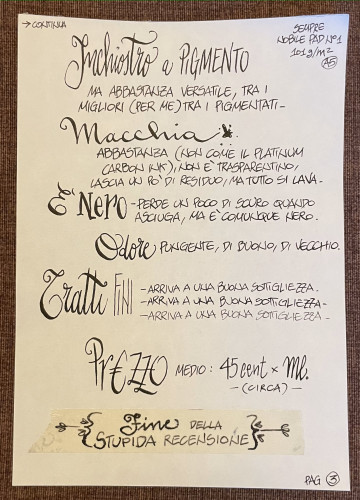 → CONTINUA
SEMPRE
NOBILE PAD Nº1
101 g/m²
A5
Inchiostro a PIGMENTO
MA ABBASTANZA VERSATILE, TRA I
MIGLIORI (PER ME) TRA I PIGMENTATI-
Macchia
ABBASTANZA (NON COME IL PLATINUM
CARBON INK), NON È TRASPARENTINO,
LASCIA UN PO' DI RESIDUO, MA TUTTO SI LAVA-
È Nero - PERDE UN POCO DI SCURO QUANDO
ASCIUGA, MA È COMUNQUE NERO.
Odore PUNGENTE, DI BUONO, DI VECCHIO.
Tratti FINI - ARRIVA A UNA BUONA SOTTIGLIEZZA.
- ARRIVA A UNA BUONA SOTTIGLIEZZA-
- ARRIVA A UNA BUONA SOTTIGLIEZZA-
PREZZO MEDIO: 45 cent x Ml.
-(CIRCA)-
Fine DELLA
STUPIDA RECENSIONE
PAG 3